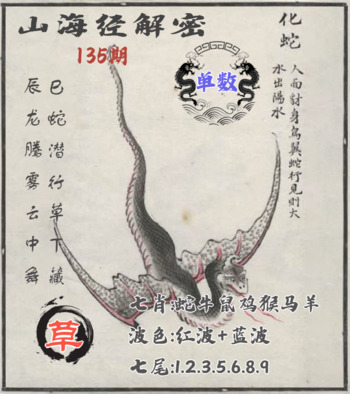 山海经解密
135期
化蛇
人面豺身鸟翼蛇行见则大
水出阳水
单数
巳蛇潜行草下藏
辰龙腾雾云中舞
草
七肖:蛇牛鼠鸡猴马羊
波色:红波+蓝波
七尾:1.2.3.5.6.8.9